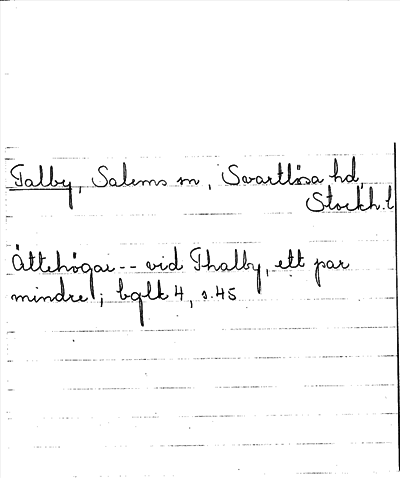 Talby, Salems sn, Svartlösa hd,
Stockh. l
Ättehögar -- vid Thalby, ett par
mindre; bglk 4, s. 45